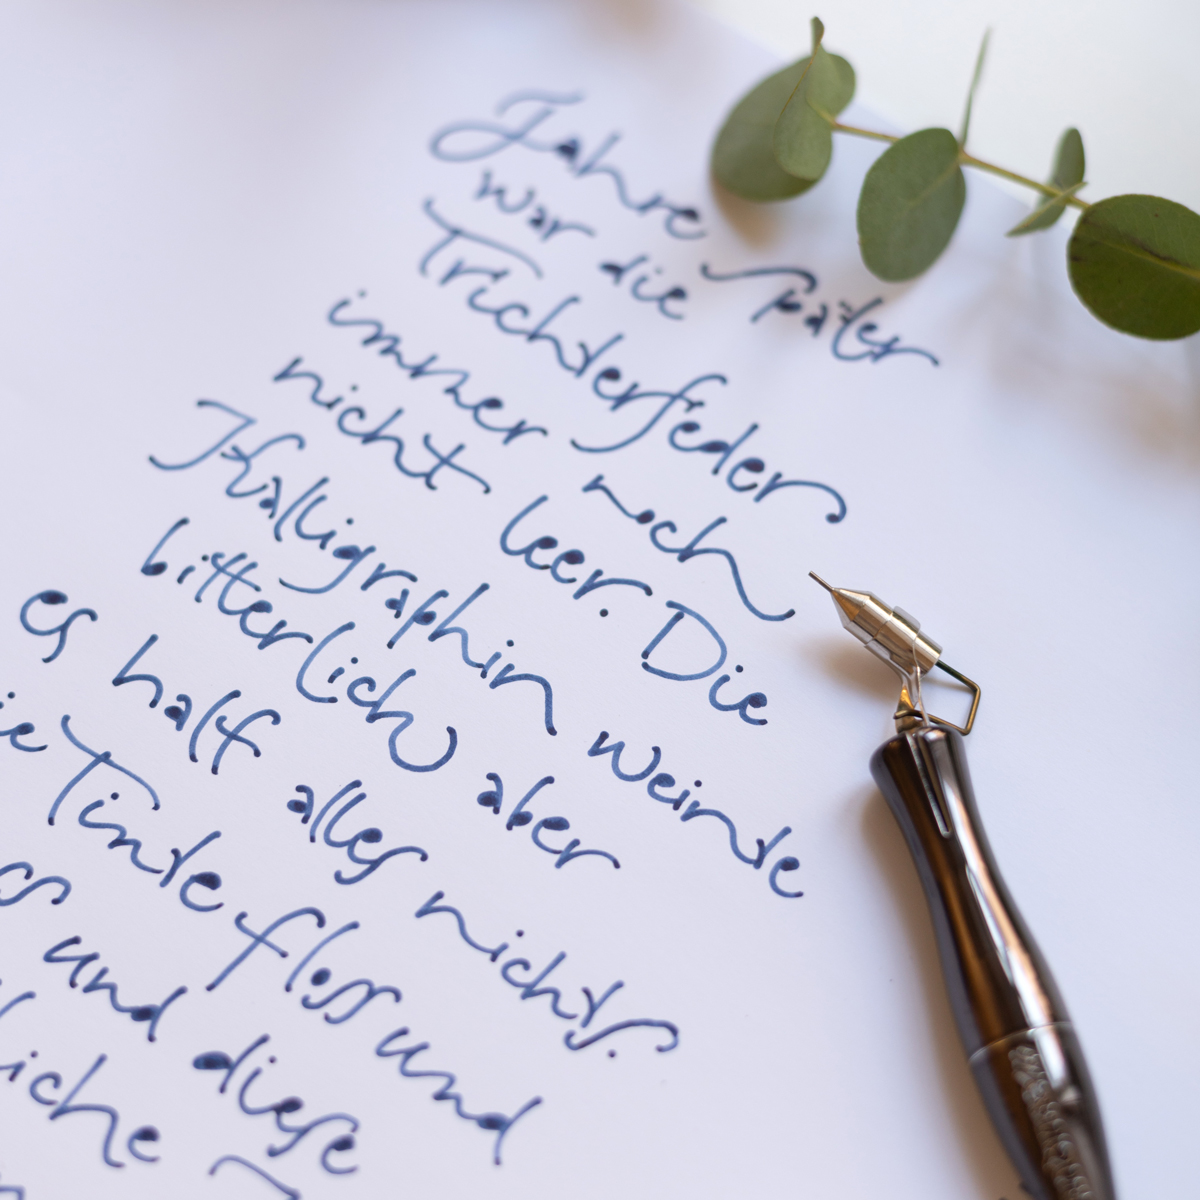 Jahre später
war die
Trichterfeder
immer noch
nicht leer. Die
Kalligraphin weinte
bitterlich aber
es half alles nichts.
ie Tinte floss und
ss und diese
iche